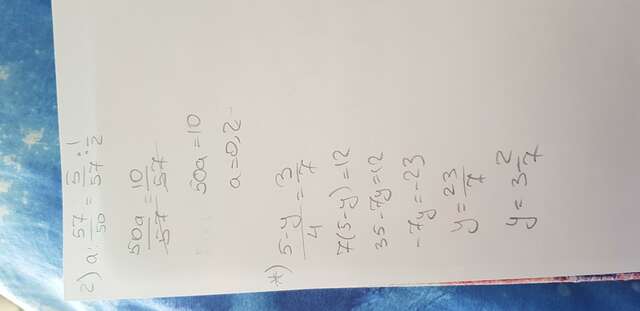 2) a : 57/50 = 5/57 : 1/2
50a/57 = 10/57
50a=10
a=0,2
*) 5-y/4 = 3/7
7(5-y)=12
35-7y=12
-7y=-23
y=23/7
y=3 2/7